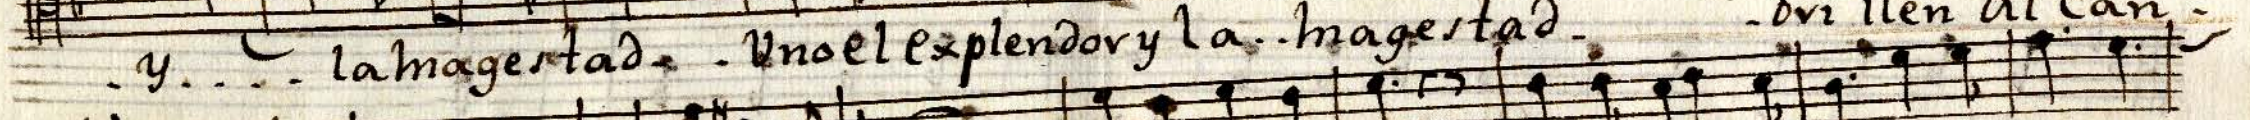 . y . . . . la magestad . . Uno el explendor y la . . magestad . . bri llen al can .